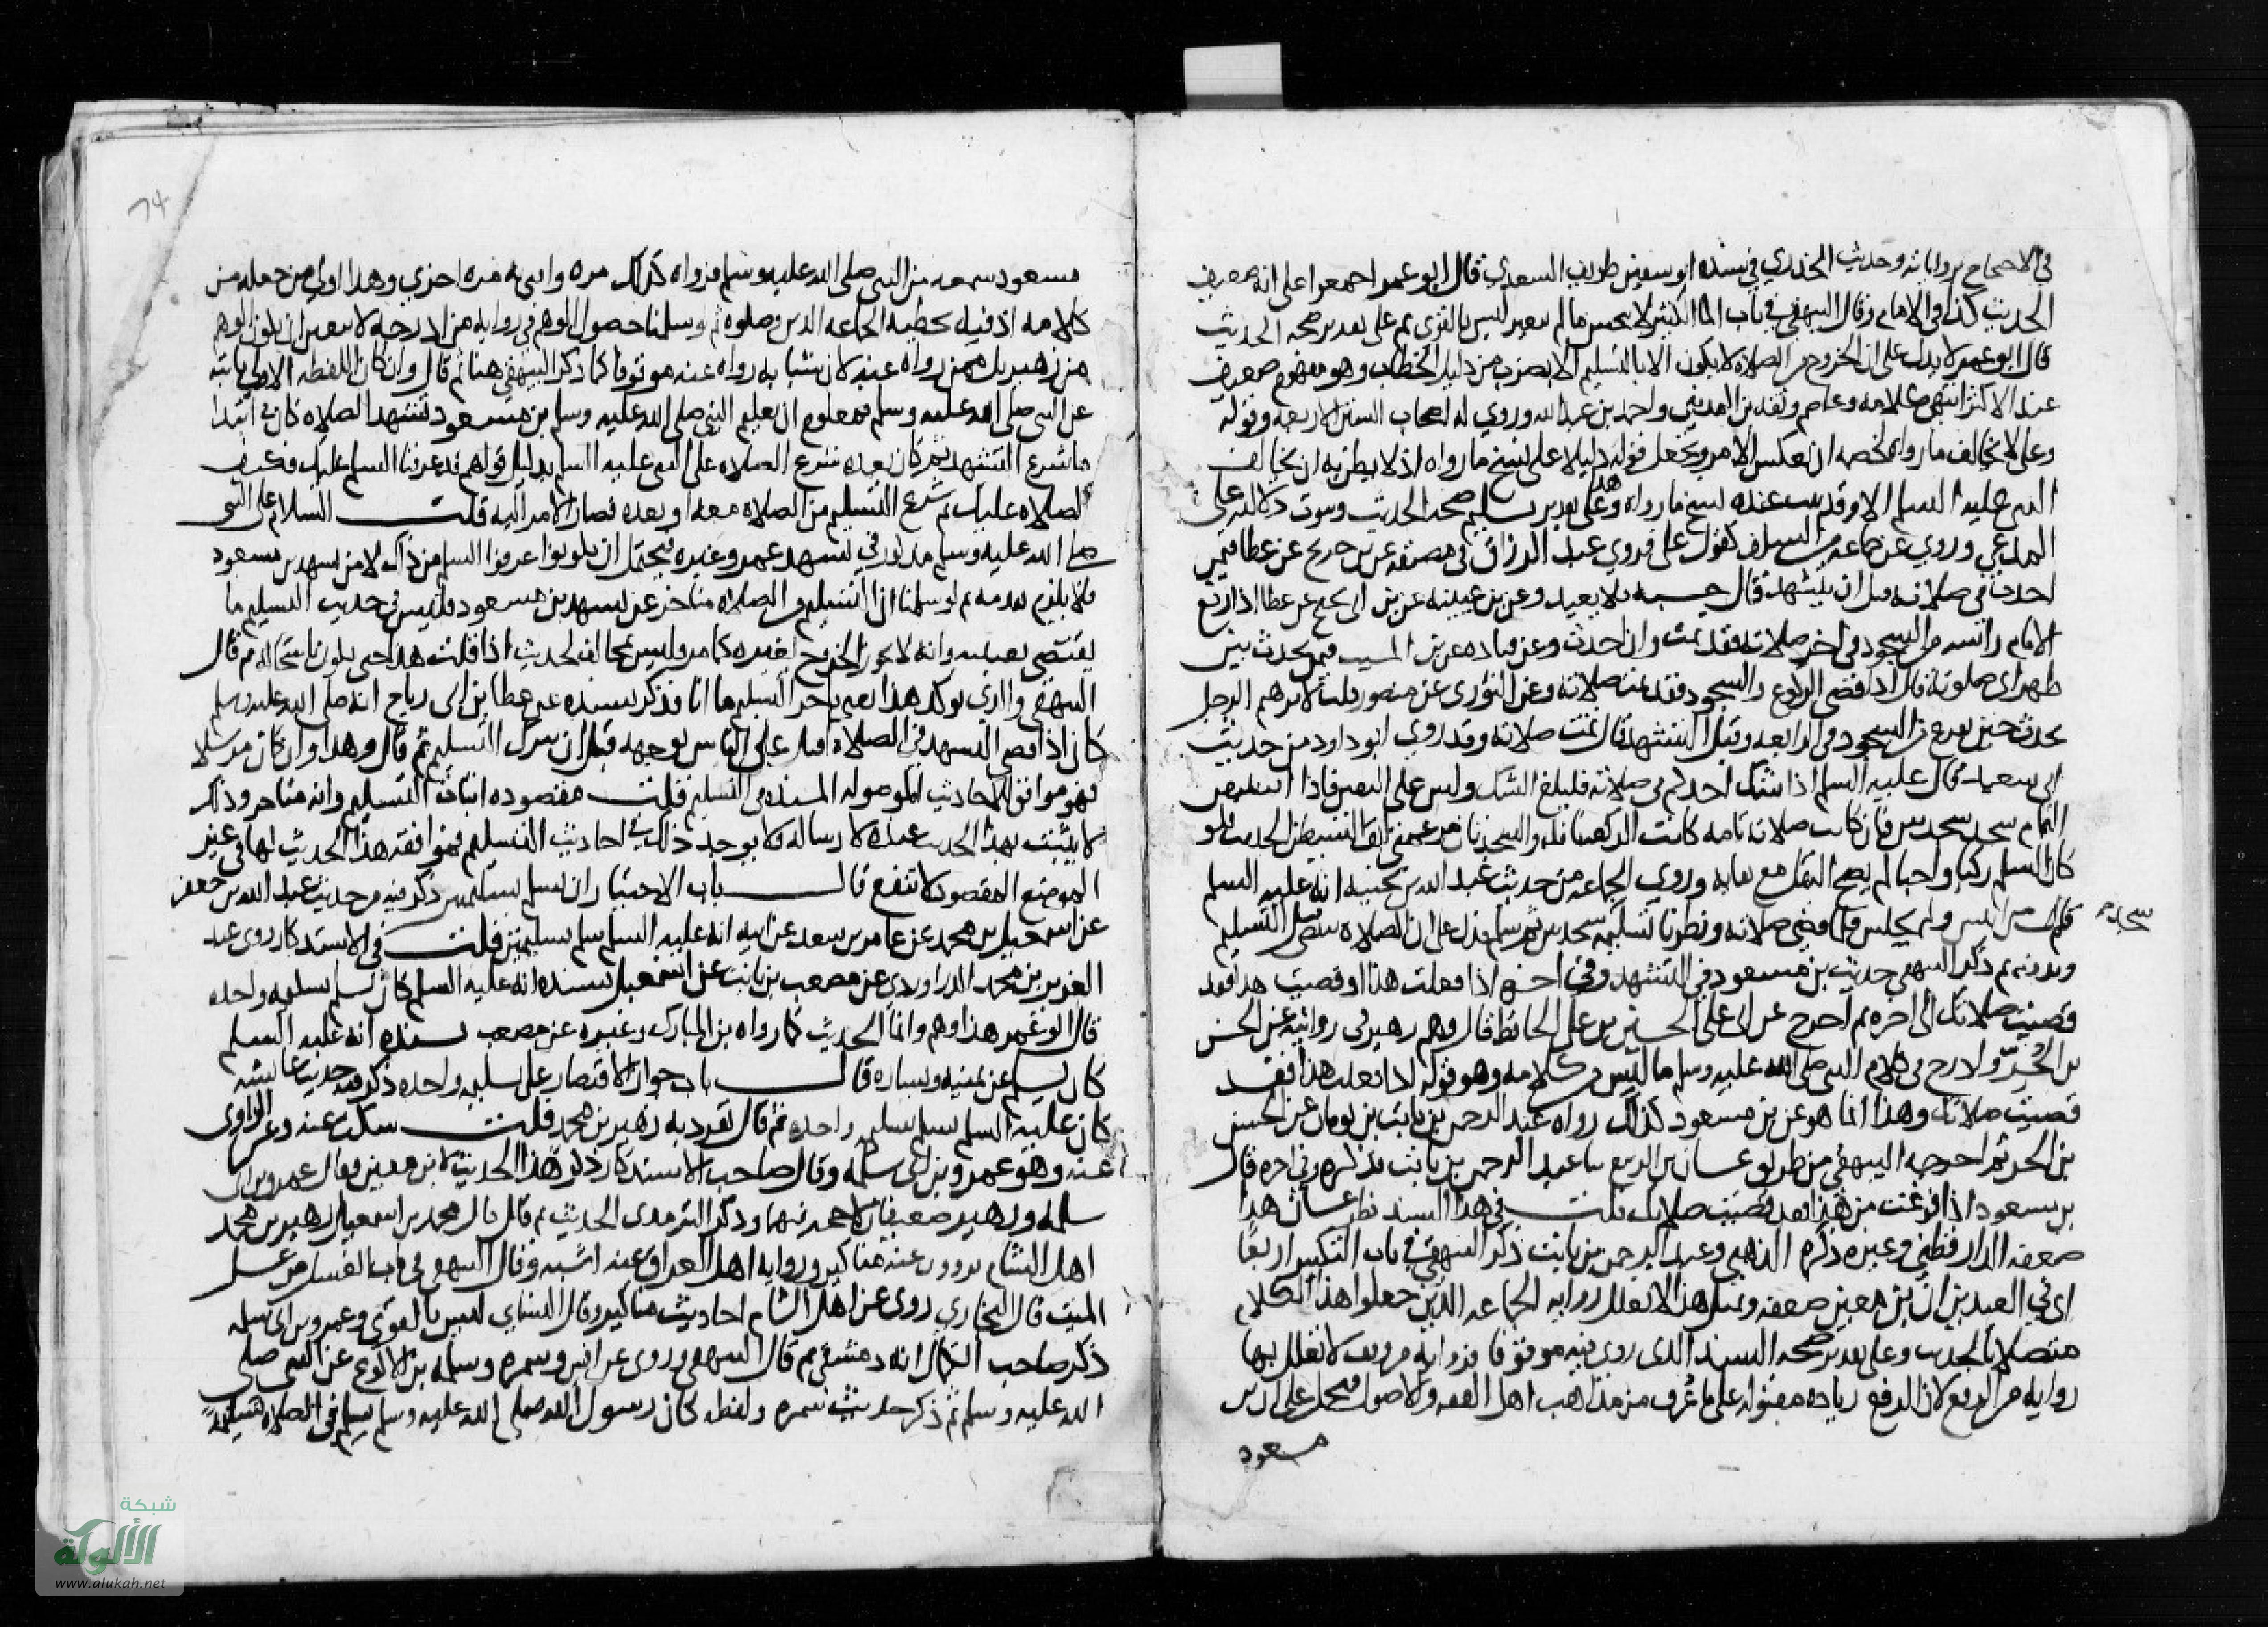 في الاحتجاج برواياته وحديث الخدري في سنده ابو سفين طريف السعدي قال ابو عمر اجمعوا على انه ضعيف
الحديث كذا في الامام وقال البيهقي في باب الما الكثير لا ينجس ما لم يتغير ليس بالقوى ثم على تقدير صحة الحديث
قال ابو عمر لا يدل على ان الخروج من الصلاة لا يكون الا بالتسليم الا بضرب من دليل الخطاب وهو مفهوم ضعيف
عند الاكثر انتهى كلامه وعاصم وثقه بن المديني واحمد بن عبد الله وروى له اصحاب السنن الاربعة وقوله
وعلى لا يخالف ما رواه لخصمه ان يعكس الامر ويجعل قوله دليلا على نسخ ما رواه اذ لا يظن به ان يخالف
النبي عليه السلم الا وقد ثبت عنده نسخ ما رواه وعلى تقدير تسليم صحة الحديث وثبوت دلالته على
المدعي وروي عن جماعة من السلف كقول على فروى عبد الرزاق في مصنفه عن بن جريج عن عطا فيمن
احدث في صلاته قبل ان يتشهد قال حسبه فلا يعيد وعن بن عيينة عن بن ابي نجيح عن عطا اذا رفع
الامام راسه من السجود في اخر صلاته فقد تمت وان احدث وعن قتادة عن بن المسيب فيمن يحدث بين
ظهراني صلوته قال اذا قضى الركوع والسجود فقد تمت صلاته وعن الثوري عن منصور قلت لابرهيم الرجل
يحدث حين يفرغ من السجود في الرابعة وقبل التشهد قال تمت صلاته وقد روى ابو داود من حديث
ابي سعيد قال عليه السلم اذا شك احدكم في صلاته فليلغ الشك وليبن على اليقين فاذا استيقن
التمام سجد سجدتين فان كانت صلاته تامة كانت الركعة نافلة والسجدتان مرغمتي انف الشيطان الحديث فلو
كان السلم ركنا واجبا لم يصح النفل مع بقايه وروى الجماعة من حديث عبد الله بن بحينة انه عليه السلم
قام من اثنتين ولم يجلس فلما قضى صلاته ونظرنا تسليمه سجد سجدتين ثم سلم فدل على ان الصلاة تنقضي قبل التسليم
وبدونه ثم ذكر البيهقي حديث بن مسعود في التشهد وفي اخره اذا فعلت هذا او قضيت هذا فقد
قضيت صلاتك الى اخره ثم اخرج عن ابي على الحسين بن على الحافظ قال وهم زهير في روايته عن الحسن
بن الحر وادرج في كلام النبي صلى الله عليه وسلم ما ليس من كلامه وهو قوله اذا فعلت هذا فقد
قضيت صلاتك وهذا انما هو عن بن مسعود كذلك رواه عبد الرحمن بن ثابت بن ثوبان عن الحسن
بن الحر ثم اخرجه البيهقي من طريق غسان بن الربيع ثنا عبد الرحمن بن ثابت فذكره وفي اخره قال
بن مسعود اذا فرغت من هذا فقد قضيت صلاتك قلت في هذا السند نظر غسان هذا
ضعفه الدارقطني وغيره ذكره الذهبي وعبد الرحمن بن ثابت ذكر البيهقي في باب التكبير اربعا
اي في العيدين ان بن معين ضعفه وبمثل هذا لا تعلل رواية الجماعة الذين جعلوا هذا الكلام
متصلا بالحديث وعلى تقدير صحة السند الذي روى فيه موقوفا فرواية من وقف لا تعلل بها
رواية من رفع لان الرفع زيادة مقبولة على ما عرف من مذاهب اهل الفقه والاصول فيحمل على ان بن
مسعود
مسعود سمعه من النبي صلى الله عليه وسلم فرواه كذلك مرة وافتى به مرة اخرى وهذا اولى من جعله من
كلامه اذ فيه تخطية الجماعة الذين وصلوه ثم لو سلمنا حصول الوهم في رواية من ادرجه لا يتعين ان يكون الوهم
من زهير بل ممن رواه عنه لان شبابة رواه عنه موقوفا كما ذكر البيهقي هنا ثم قال وان كان اللفظة الاولى ثابتة
عن النبي صلى الله عليه وسلم فمعلوم ان تعليم النبي صلى الله عليه وسلم بن مسعود تشهد الصلاة كان في ابتدا
ما شرع التشهد ثم كان بعده شرع الصلاة على النبي عليه السلم بدليل قولهم قد عرفنا السلم عليك فكيف
الصلاة عليك ثم شرع التسليم من الصلاة معه او بعده فصار الامر اليه قلت السلام على النبي
صلى الله عليه وسلم مذكور في تشهد عمر وغيره فيحتمل ان يكونوا عرفوا السلم من ذاك لا من تشهد بن مسعود
فلا يلزم تقدمه ثم لو سلمنا ان التسليم من الصلاة متاخر عن تشهد بن مسعود فليس في حديث التسليم ما
يقتضي تعيينه وانه لا يجوز الخروج بغيره كما مر وليس مخالفا لحديث اذا قلت هذا حتى يكون ناسخا له ثم قال
البيهقي والذي يوكد هذا تعيين تاخر التسليم ما انا فذكر بسنده عن عطا بن ابي رباح انه صلى الله عليه وسلم
كان اذا قضى التشهد في الصلاة اقبل على الناس بوجهه قبل ان ينزل التسليم ثم قال وهذا وان كان مرسلا
فهو موافق للاحاديث الموصولة المسندة في التسليم قلت مقصوده اثبات التسليم وانه متاخر وذلك
لا يثبت بهذا الحديث عنده لارساله ولا يوجد ذلك في احاديث التسليم فموافقة هذا الحديث لها في غير
الموضع المقصود لا تنفع قال باب الاختيار ان يسلم تسليمتين ذكر فيه من حديث عبد الله بن جعفر
عن اسمعيل بن محمد عن عامر بن سعد عن ابيه انه عليه السلم سلم تسليمتين قلت في الاستذكار روى عبد
العزيز بن محمد الدراوردي عن مصعب بن ثابت عن اسمعيل بسنده انه عليه السلم كان يسلم تسليمة واحدة
قال ابو عمر هذا وهم وانما الحديث كما رواه بن المبارك وغيره عن مصعب بسنده انه عليه السلم
كان يسلم عن يمينه ويساره قال باب جواز الاقتصار على تسليمة واحدة ذكر فيه حديث عائشة
كان عليه السلم يسلم تسليمة واحدة ثم قال تفرد به زهير بن محمد قلت سكت عنه وعن الراوي
عنه وهو عمرو بن ابي سلمة وقال صاحب الاستذكار ذكر هذا الحديث لابن معين فقال عمرو بن ابي
سلمة وزهير ضعيفان لا حجة فيهما وذكر الترمذي الحديث ثم قال قال محمد بن اسمعيل زهير بن محمد
اهل الشام يروون عنه مناكير ورواية اهل العراق عنه اشبه وقال البيهقي في باب الغسل من غسل
الميت قال البخاري روى عن اهل الشام احاديث مناكير وقال النسائي ليس بالقوي وعمرو بن ابي سلمة
ذكر صاحب الكمال انه دمشقي ثم قال البيهقي وروى عن انس وسمرة وسلمة بن الاكوع عن النبي صلى
الله عليه وسلم ثم ذكر حديث سمرة ولفظه كان رسول الله صلى الله عليه وسلم يسلم في الصلاة تسليمة
شبكة
الألوكة
www.alukah.net